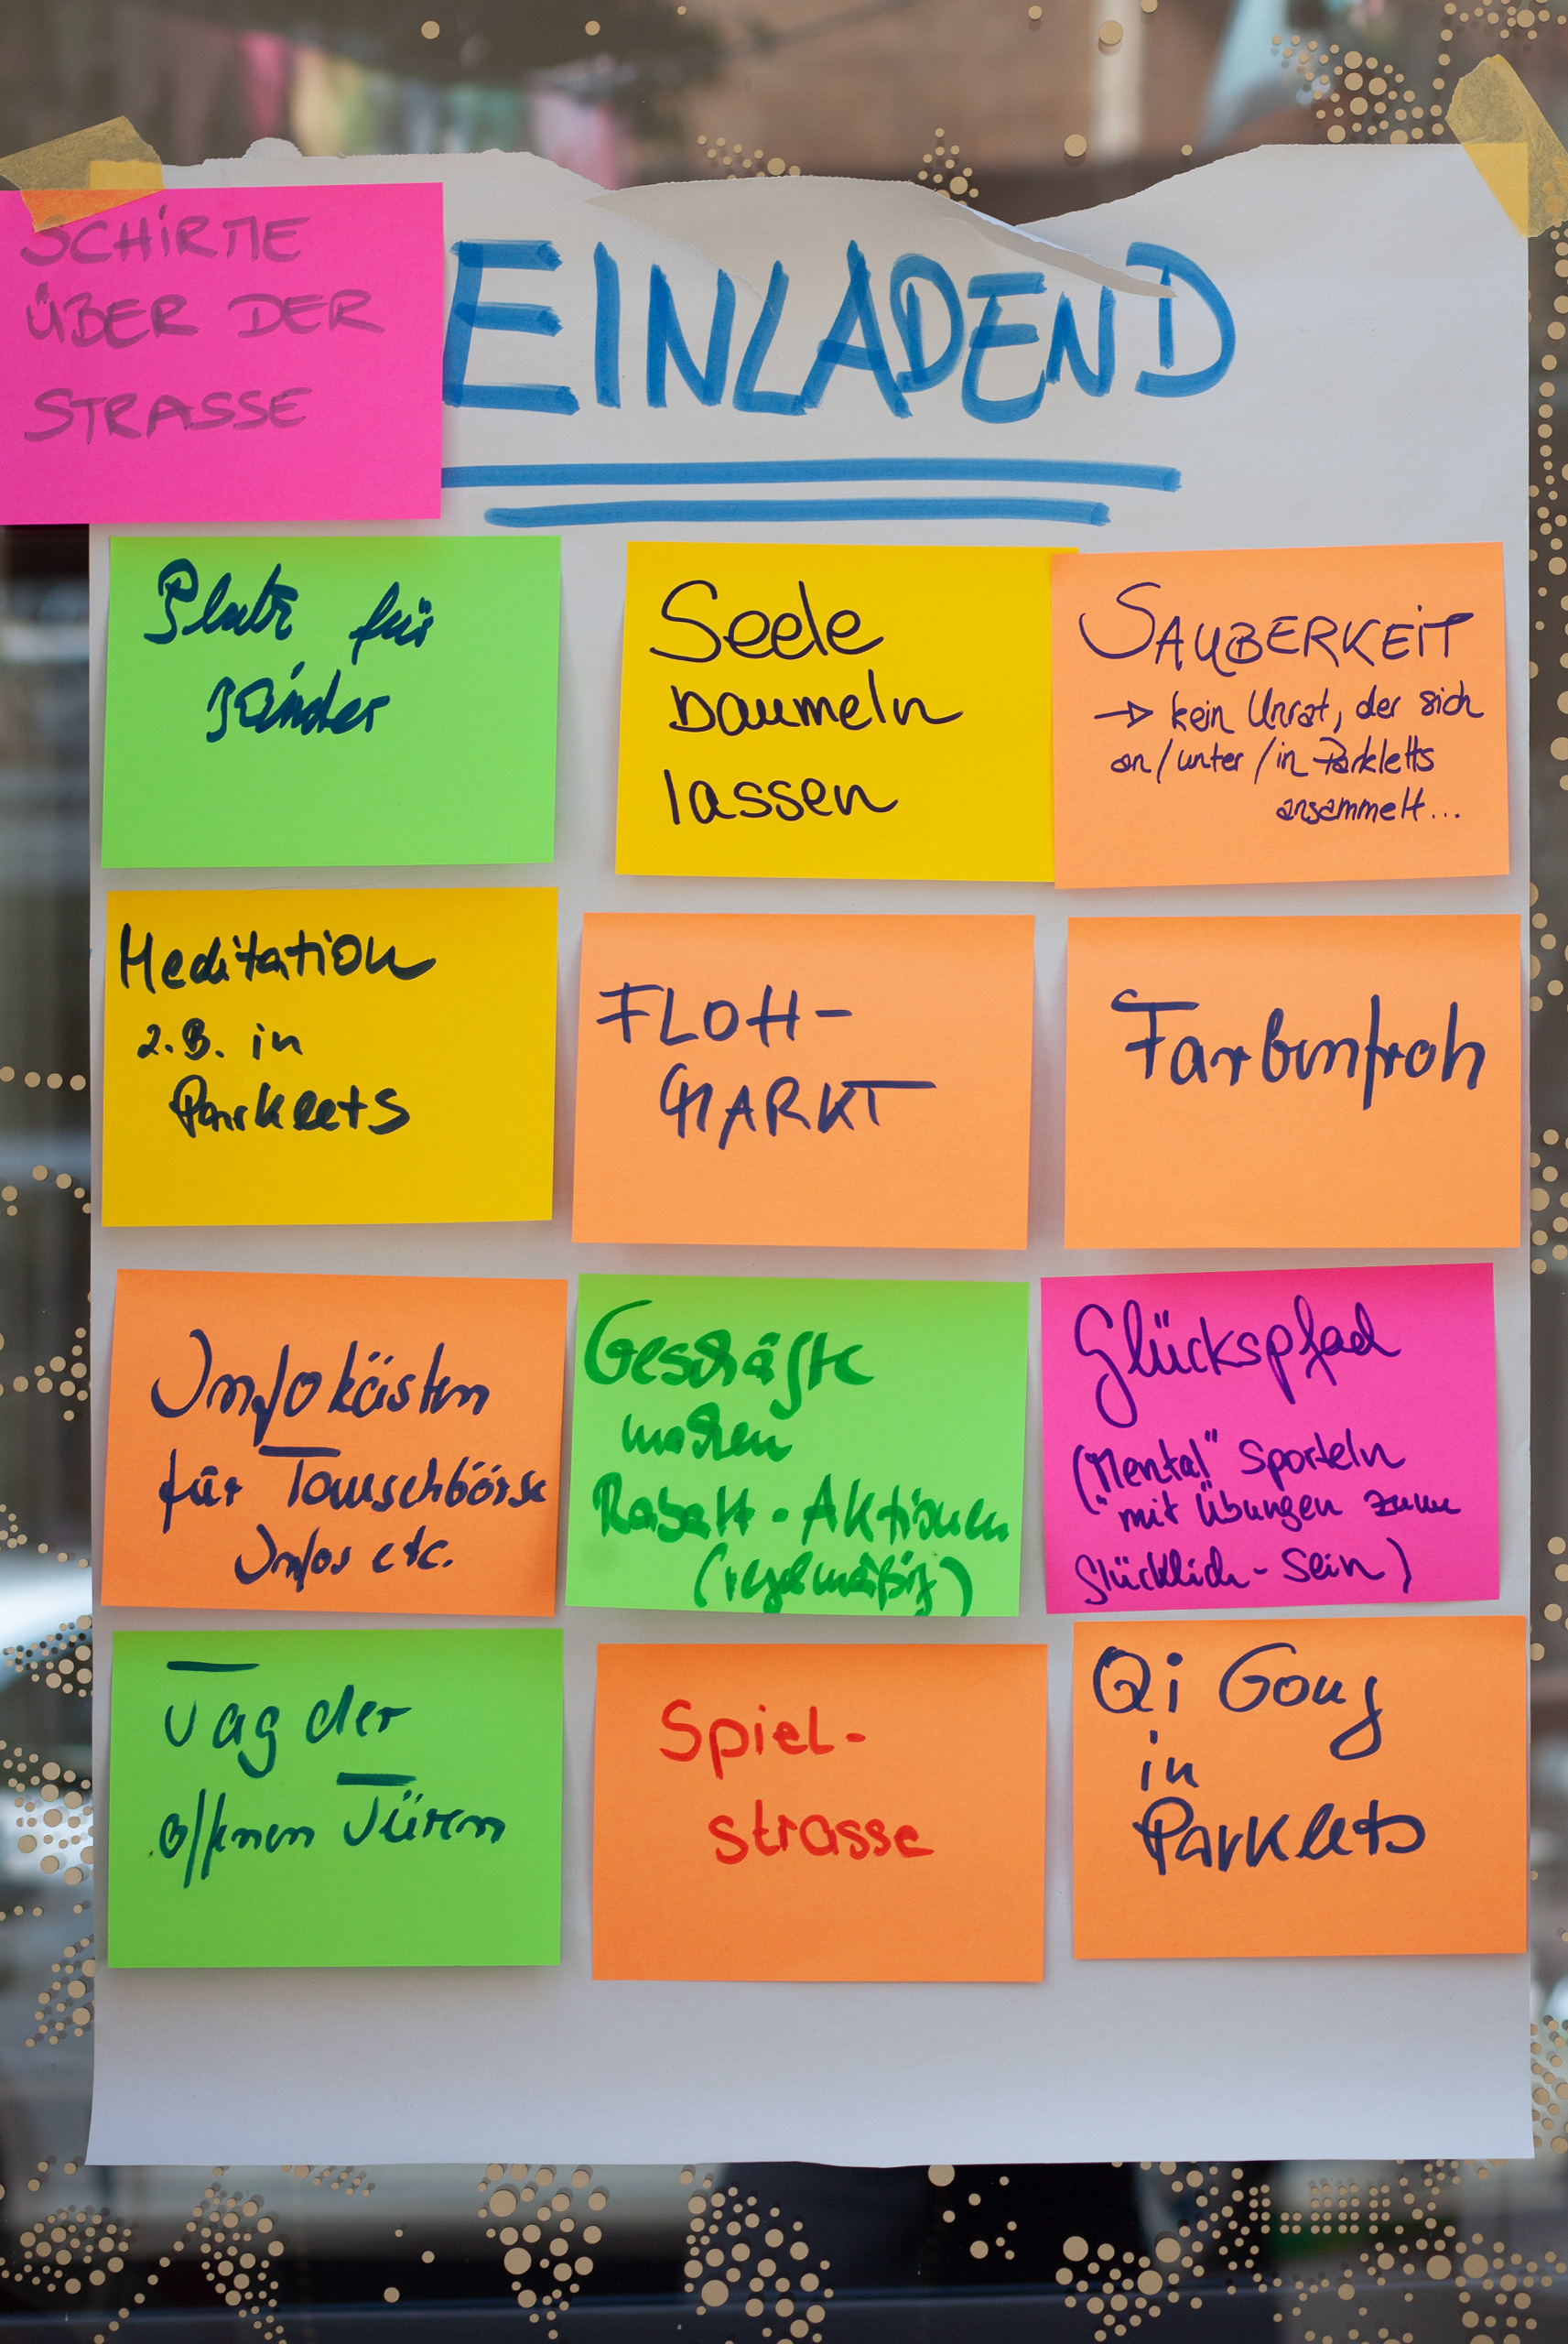 SCHIRME
ÜBER DER
STRASSE
EINLADEND
Platz für
Kinder
Seele
baumeln
lassen
SAUBERKEIT
→ kein Unrat, der sich
an/unter/in Parkletts
ansammelt...
Meditation
z.B. in
Parklets
FLOH-
MARKT
Farbenfroh
Infokästen
für Tauschbörse
Infos etc.
Geschäfte
machen
Rabatt-Aktionen
(regelmäßig)
Glückspfad
(„Mental“ sporteln
mit Übungen zum
Glücklich-Sein)
Tag der
offenen Türen
Spiel-
strasse
Qi Gong
in
Parklets